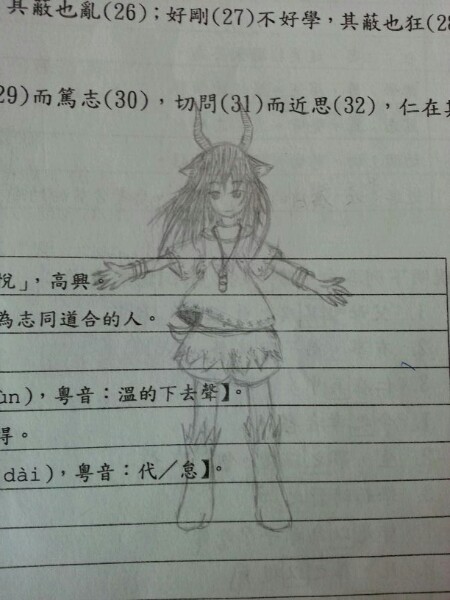 其蔽也亂(26)；好剛(27)不好學，其蔽也狂(28
29)而篤志(30)，切問(31)而近思(32)，仁在其
悅」，高興。
為志同道合的人。
ùn)，粵音：溫的下去聲】。
得。
dài)，粵音：代／怠】。